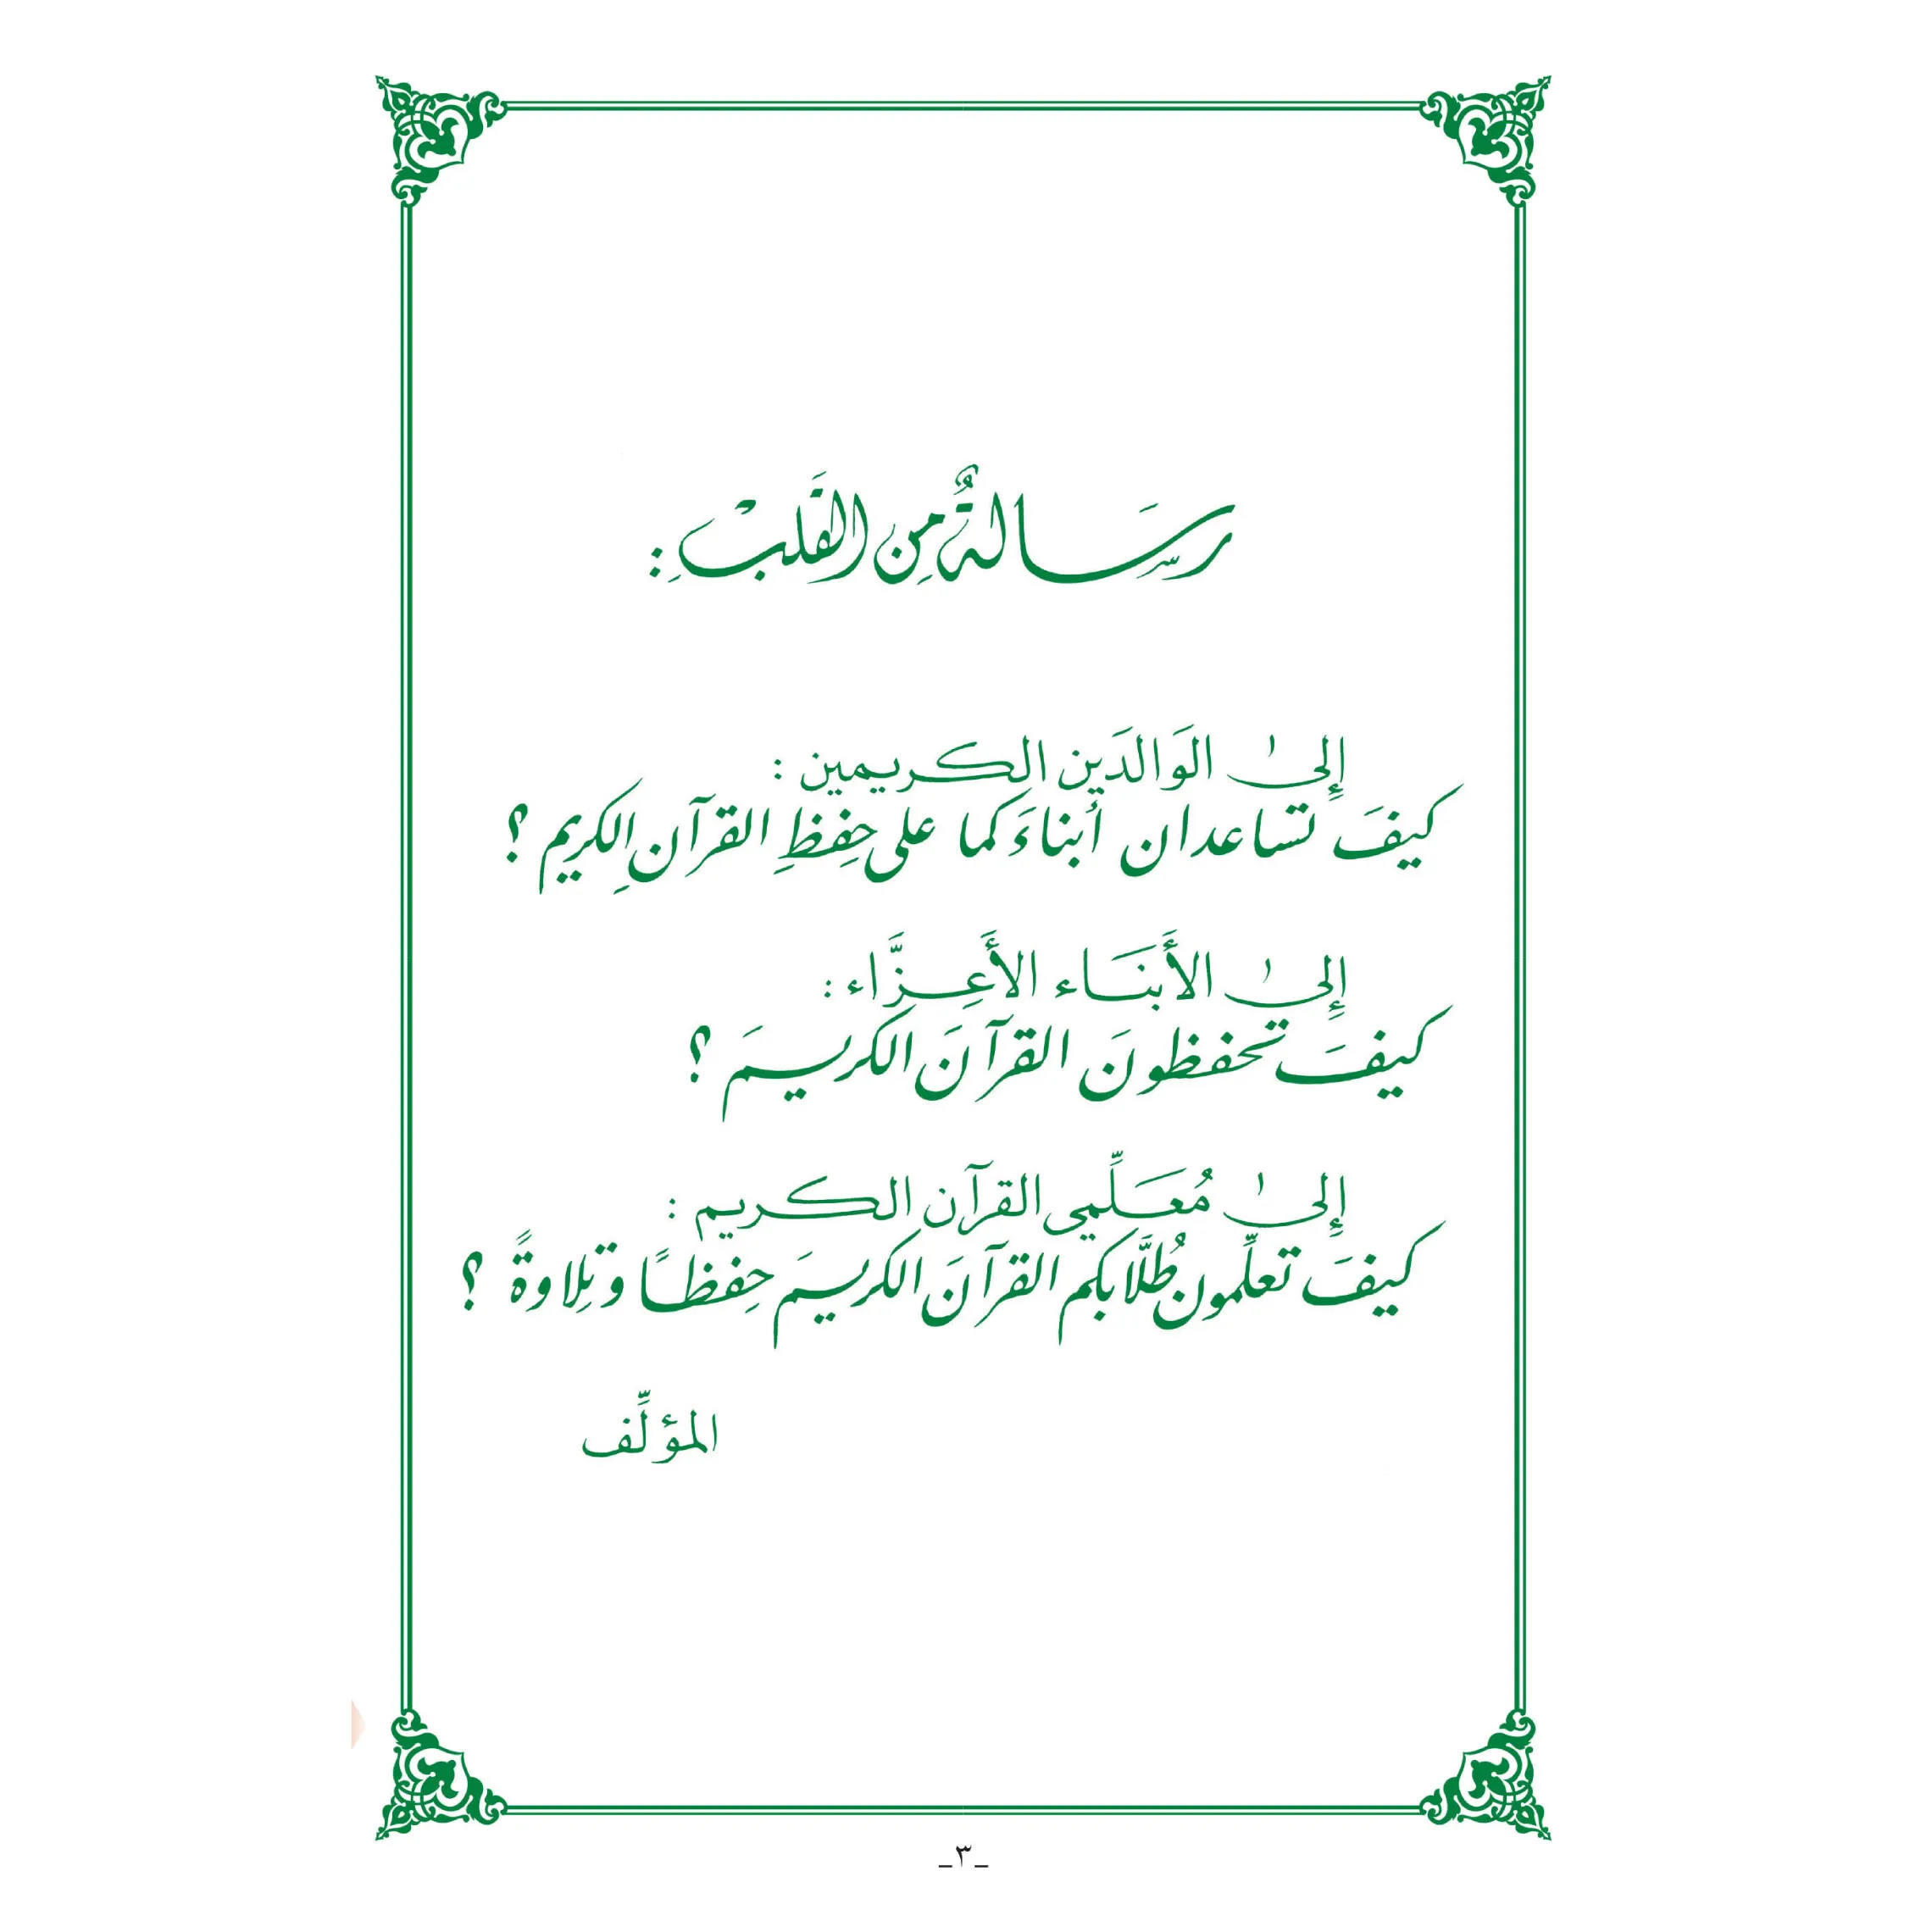 رِسَالةٌ مِن القَلبِ :
إلىٰ الوَالدَين الكريمين :
كيفَ تساعدان أبناءكما على حِفظِ القرآنِ الكريم ؟
إلىٰ الأَبنَاء الأَعِزَّاء :
كيفَ تحفظونَ القرآنَ الكريمَ ؟
إلىٰ مُعَلِّمي القرآن الكريم :
كيفَ تعلِّمون طُلَّابكم القرآنَ الكريمَ حِفظًا وتلاوةً ؟
المؤلِّف
_٣_